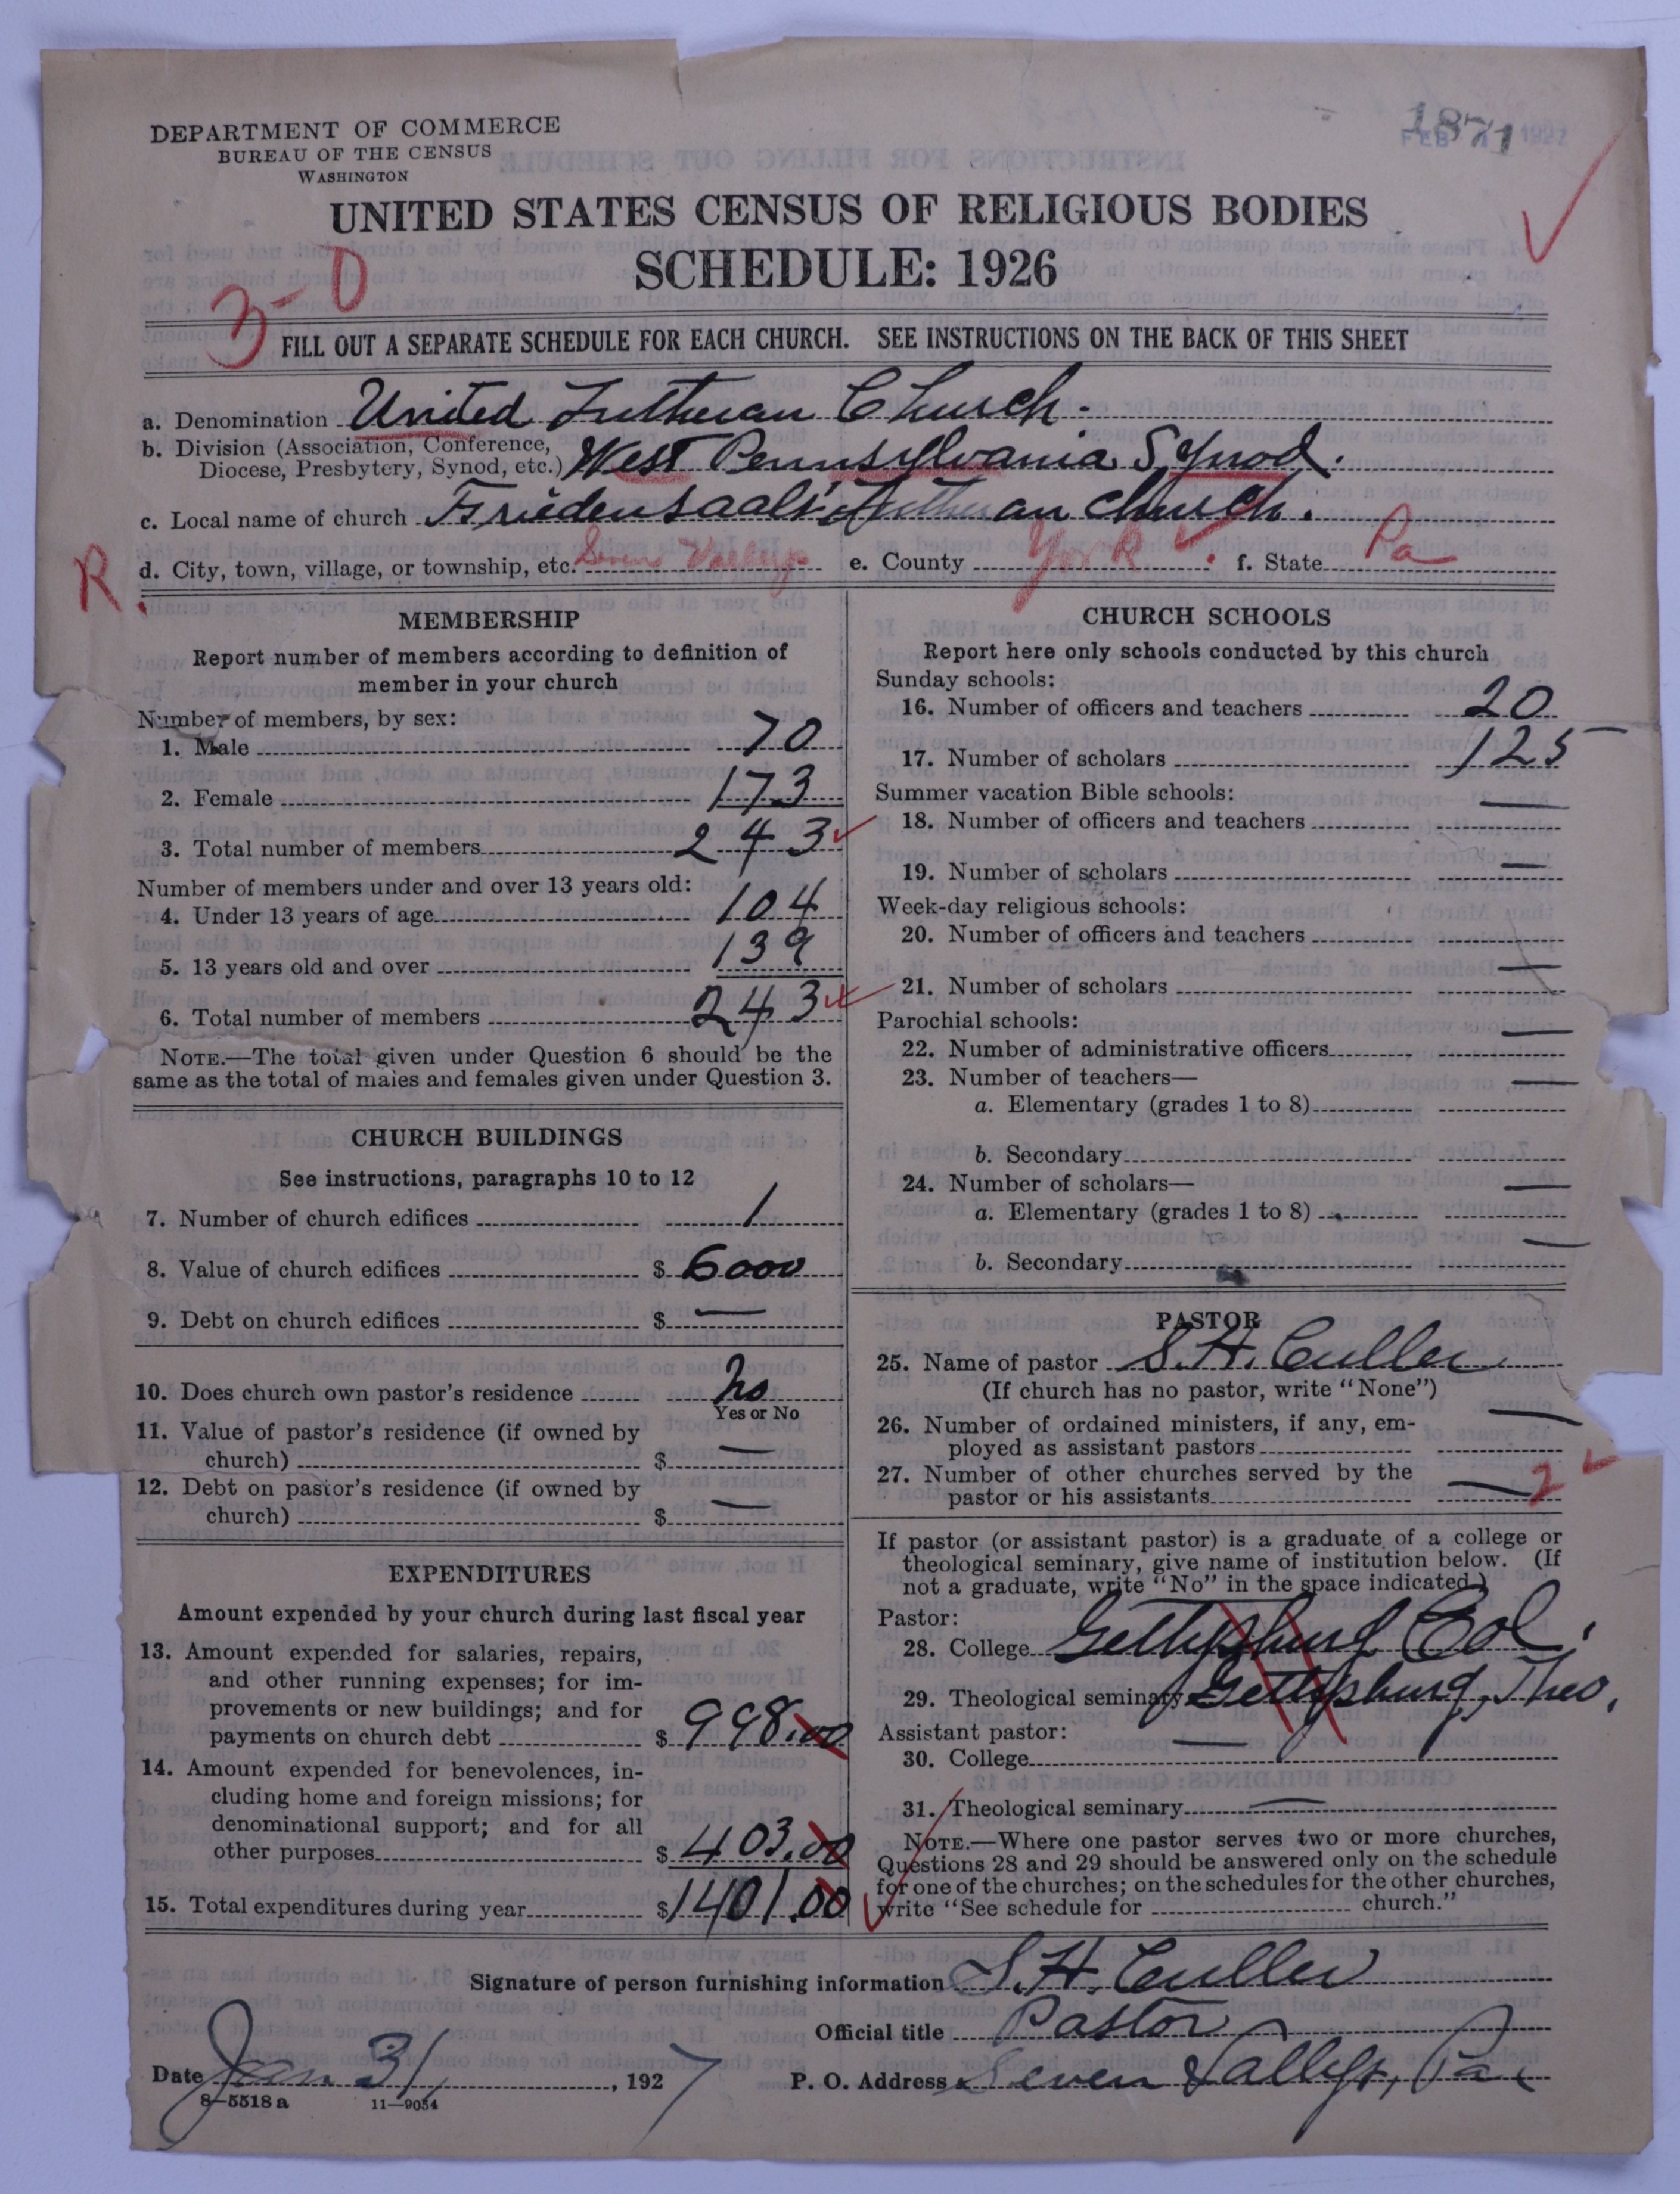 DEPARTMENT OF COMMERCE
BUREAU OF THE CENSUS
WASHINGTON
1871
FEB 1927
UNITED STATES CENSUS OF RELIGIOUS BODIES
SCHEDULE: 1926
3-0
FILL OUT A SEPARATE SCHEDULE FOR EACH CHURCH. SEE INSTRUCTIONS ON THE BACK OF THIS SHEET
a. Denomination United Lutheran Church.
b. Division (Association, Conference,
Diocese, Presbytery, Synod, etc.) West Pennsylvania Synod.
c. Local name of church Friedensaals Lutheran church.
R. d. City, town, village, or township, etc. Seven Valleys e. County York. f. State Pa
MEMBERSHIP
Report number of members according to definition of
member in your church
Number of members, by sex:
1. Male 70
2. Female 173
3. Total number of members 243
Number of members under and over 13 years old:
4. Under 13 years of age 104
5. 13 years old and over 139
6. Total number of members 243
NOTE.—The total given under Question 6 should be the
same as the total of males and females given under Question 3.
CHURCH BUILDINGS
See instructions, paragraphs 10 to 12
7. Number of church edifices 1
8. Value of church edifices $ 6000
9. Debt on church edifices $ —
10. Does church own pastor's residence no
Yes or No
11. Value of pastor's residence (if owned by
church) $ —
12. Debt on pastor's residence (if owned by
church) $ —
EXPENDITURES
Amount expended by your church during last fiscal year
13. Amount expended for salaries, repairs,
and other running expenses; for im-
provements or new buildings; and for
payments on church debt $ 998.00
14. Amount expended for benevolences, in-
cluding home and foreign missions; for
denominational support; and for all
other purposes $ 403.00
15. Total expenditures during year $ 1401.00
CHURCH SCHOOLS
Report here only schools conducted by this church
Sunday schools:
16. Number of officers and teachers 20
17. Number of scholars 125
Summer vacation Bible schools:
18. Number of officers and teachers —
19. Number of scholars —
Week-day religious schools:
20. Number of officers and teachers
21. Number of scholars —
Parochial schools:
22. Number of administrative officers —
23. Number of teachers—
a. Elementary (grades 1 to 8) —
b. Secondary
24. Number of scholars—
a. Elementary (grades 1 to 8) —
b. Secondary —
PASTOR
25. Name of pastor S. H. Culler
(If church has no pastor, write "None")
26. Number of ordained ministers, if any, em-
ployed as assistant pastors —
27. Number of other churches served by the
pastor or his assistants — 2
If pastor (or assistant pastor) is a graduate of a college or
theological seminary, give name of institution below. (If
not a graduate, write "No" in the space indicated.)
Pastor:
28. College Gettysburg Col.
29. Theological seminary Gettysburg, Theo.
Assistant pastor:
30. College —
31. Theological seminary —
NOTE.—Where one pastor serves two or more churches,
Questions 28 and 29 should be answered only on the schedule
for one of the churches; on the schedules for the other churches,
write "See schedule for church."
Signature of person furnishing information S. H. Culler
Official title Pastor
Date Jan 31, 1927 P. O. Address Seven Valleys, Pa.
8-5518 a 11-9054